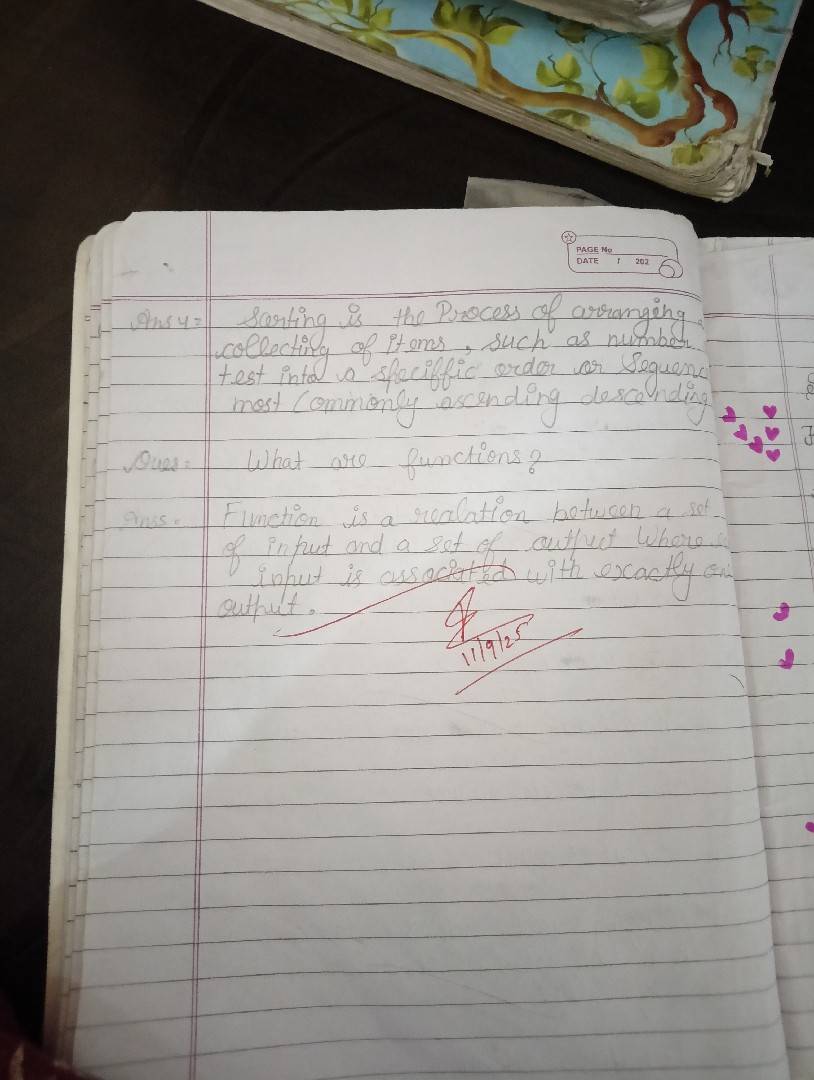 PAGE No
DATE / 202
Ans 4= Sorting is the Process of arranging
collecting of items, such as number
test into a speciffic order or Sequenc
most Commonly ascending descending
Ques= What are functions?
Ans= Function is a realation between a set
of input and a set of output Where
input is associated with excactly on
output.
11/9/25